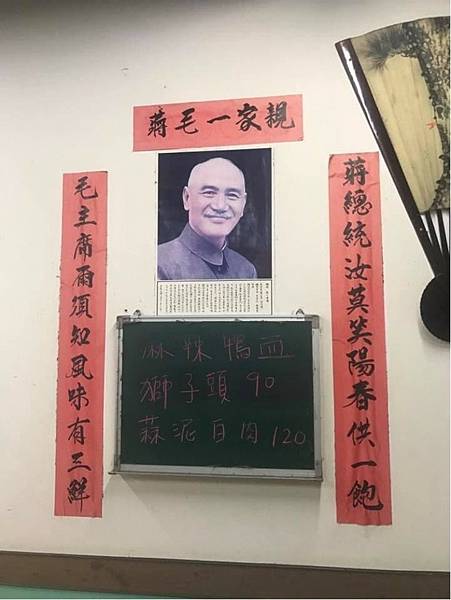 蔣毛一家親
蔣總統汝莫笑陽春供一飽
毛主席爾須知風味有三鮮
麻辣鴨血
獅子頭 90
蒜泥白肉 120